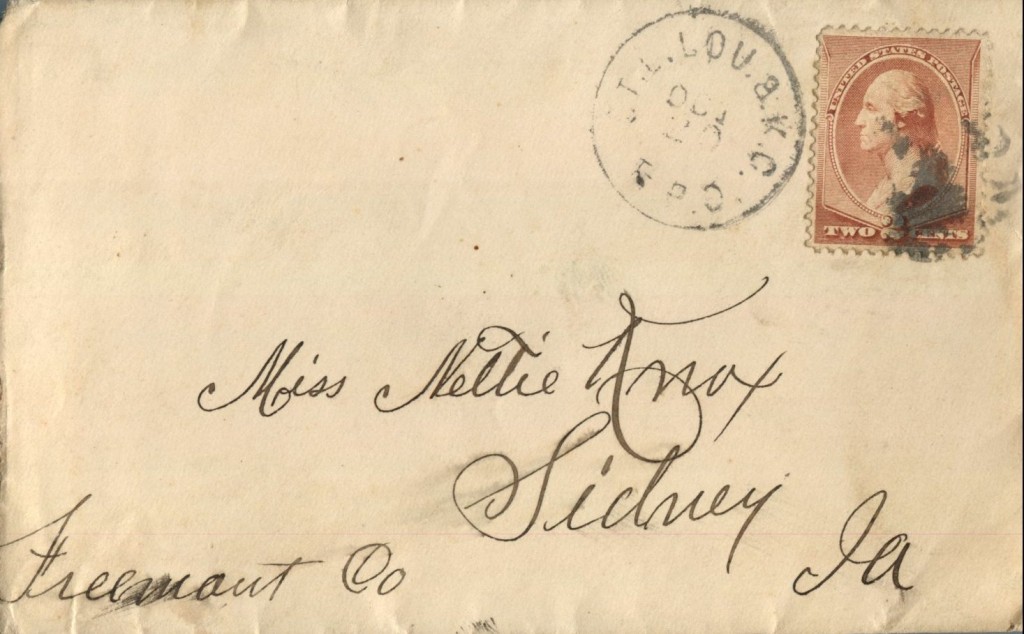 ST. L. LOU. & K. C.
R.P.O.
UNITED STATES POSTAGE
TWO CENTS
Miss Nettie Knox
Sidney
Freemont Co Ia